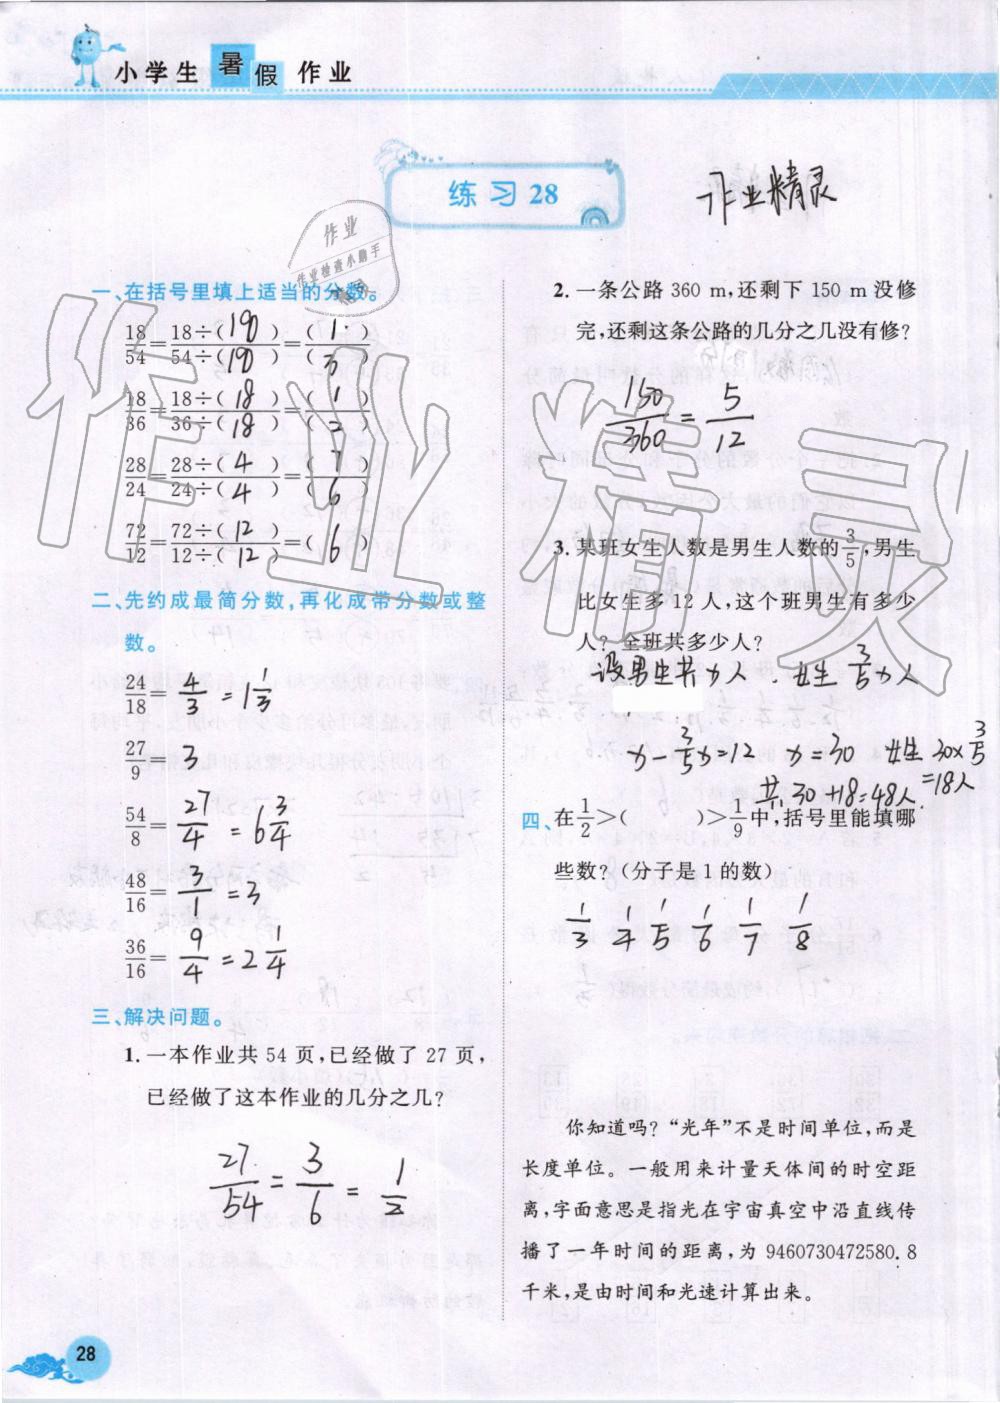 小学生暑假作业
练习28
作业精灵
作业
作业检查小助手
一、在括号里填上适当的分数。
18/54=18÷(18)/54÷(18)=(1)/(3)
18/36=18÷(18)/36÷(18)=(1)/(2)
28/24=28÷(4)/24÷(4)=(7)/(6)
72/12=72÷(12)/12÷(12)=(6)
二、先约成最简分数,再化成带分数或整
数。
24/18=4/3=1 1/3
27/9=3
54/8=27/4=6 3/4
48/16=3/1=3
36/16=9/4=2 1/4
三、解决问题。
1. 一本作业共 54 页,已经做了 27 页,
已经做了这本作业的几分之几?
27/54=3/6=1/2
2. 一条公路 360 m,还剩下 150 m 没修
完,还剩这条公路的几分之几没有修?
150/360=5/12
3. 某班女生人数是男生人数的3/5,男生
比女生多 12 人,这个班男生有多少
人? 全班共多少人?
设男生共x人.女生3/5x人
x-3/5x=12 x=30 女生30×3/5
=18人
共30+18=48人.
四、在1/2>( )>1/9中,括号里能填哪
些数?(分子是 1 的数)
1/3 1/4 1/5 1/6 1/7 1/8
你知道吗?“光年”不是时间单位,而是
长度单位。一般用来计量天体间的时空距
离,字面意思是指光在宇宙真空中沿直线传
播了一年时间的距离,为 9460730472580.8
千米,是由时间和光速计算出来。
28
作业精灵